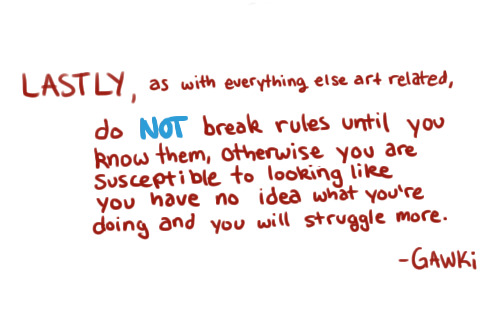 LASTLY, as with everything else art related,
do NOT break rules until you
know them, otherwise you are
susceptible to looking like
you have no idea what you're
doing and you will struggle more.
-GAWKi